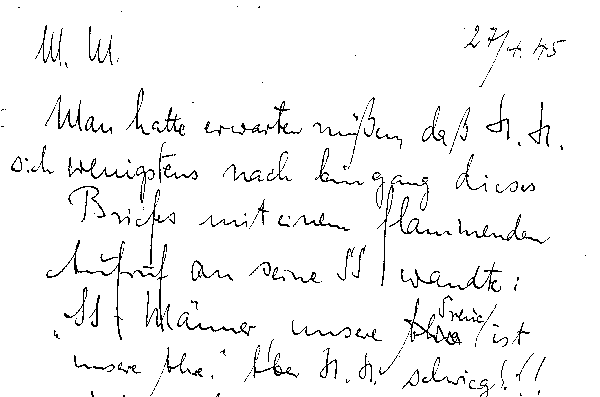 M. M. 27/4. 45
Man hatte erwarten müßen, daß H. H.
sich wenigstens nach Eingang dieses
Briefes mit einem flammenden
Aufruf an seine SS wandte:
"SS-Männer unsere Treue ist
unsere Ehre." Aber H. H. schwieg!!!